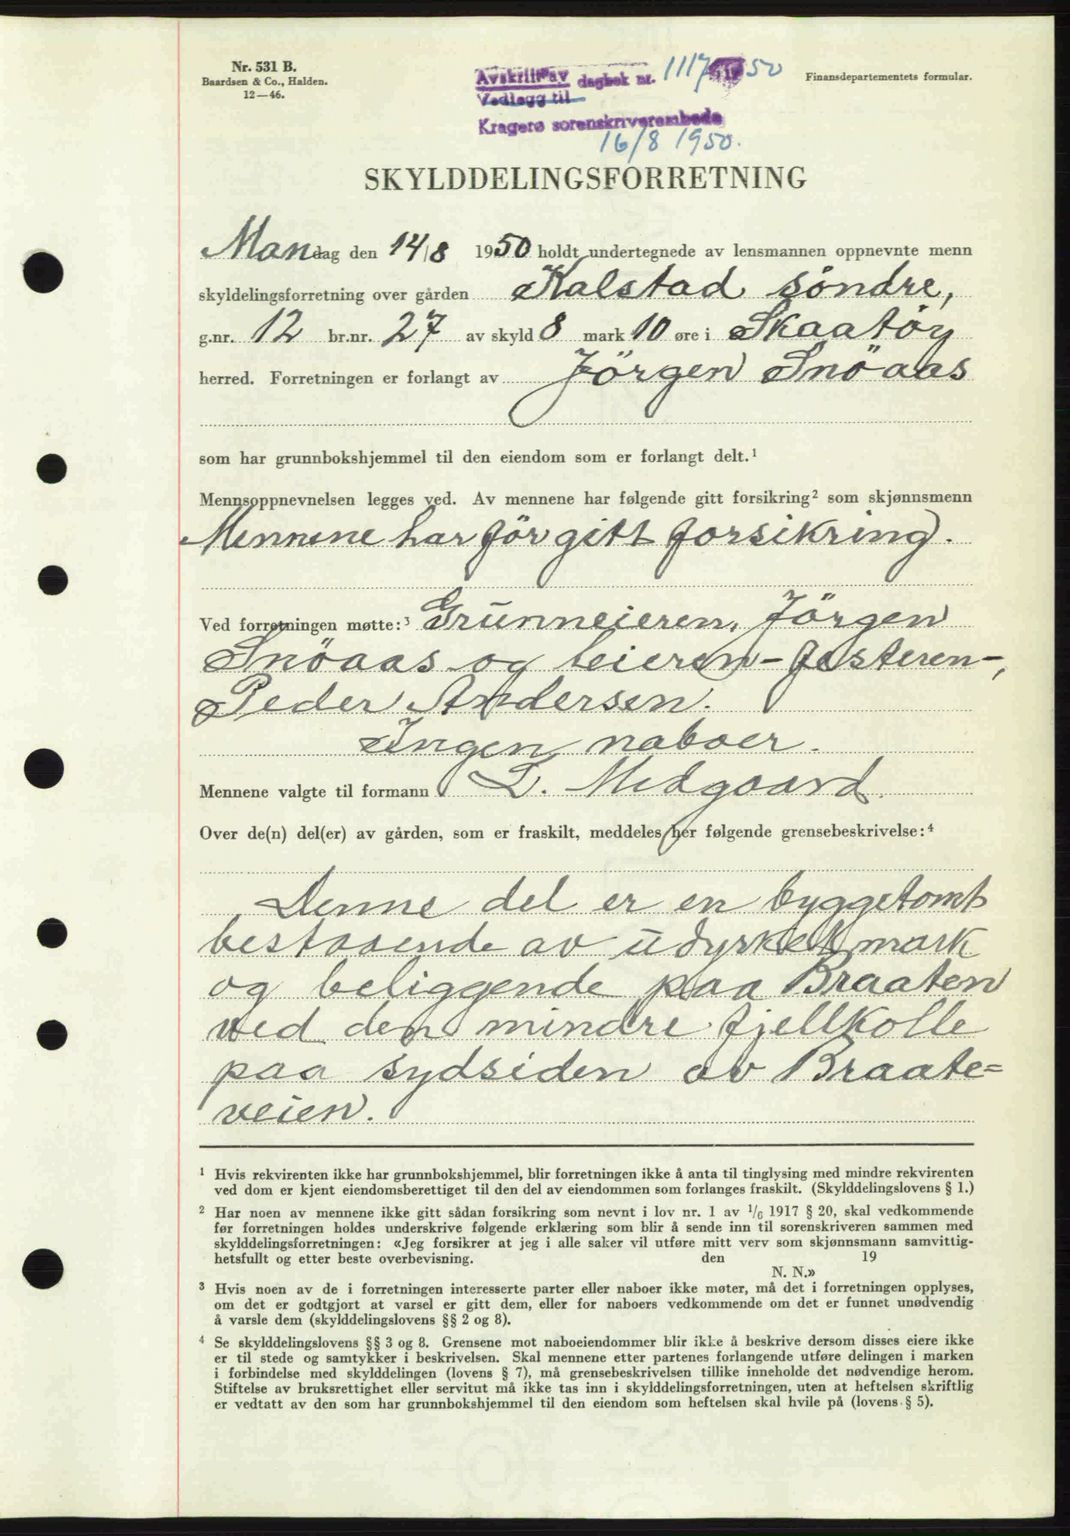 Nr. 531 B.
Baardsen & Co., Halden.
12—46.
Avskrift av dagbok nr. 1117 1950
Vedlegg til
Kragerø sorenskriverembede
16/8 1950.
Finansdepartementets formular.
SKYLDDELINGSFORRETNING
Mandag den 14/8 1950 holdt undertegnede av lensmannen oppnevnte menn
skyldelingsforretning over gården Kalstad söndre,
g.nr. 12 br.nr. 27 av skyld 8 mark 10 øre i Skaatöy
herred. Forretningen er forlangt av Jörgen Snöaas
som har grunnbokshjemmel til den eiendom som er forlangt delt.¹
Mennsoppnevnelsen legges ved. Av mennene har følgende gitt forsikring² som skjønnsmenn
Mennene har för gitt forsikring.
Ved forretningen møtte:³ Grunneieren, Jörgen
Snöaas og leieren-festeren-,
Peder Andersen.
Ingen naboer.
Mennene valgte til formann L. Midgaard.
Over de(n) del(er) av gården, som er fraskilt, meddeles her følgende grensebeskrivelse:⁴
Denne del er en byggetomt
bestaaende av udyrket mark
og beliggende paa Braaten
ved den mindre fjellkolle
paa sydsiden av Braate=
veien.
¹ Hvis rekvirenten ikke har grunnbokshjemmel, blir forretningen ikke å anta til tinglysing med mindre rekvirenten
ved dom er kjent eiendomsberettiget til den del av eiendommen som forlanges fraskilt. (Skylddelingslovens § 1.)
² Har noen av mennene ikke gitt sådan forsikring som nevnt i lov nr. 1 av 1/6 1917 § 20, skal vedkommende
før forretningen holdes underskrive følgende erklæring som blir å sende inn til sorenskriveren sammen med
skylddelingsforretningen: «Jeg forsikrer at jeg i alle saker vil utføre mitt verv som skjønnsmann samvittig-
hetsfullt og etter beste overbevisning. den 19
N. N.»
³ Hvis noen av de i forretningen interesserte parter eller naboer ikke møter, må det i forretningen opplyses,
om det er godtgjort at varsel er gitt dem, eller for naboers vedkommende om det er funnet unødvendig
å varsle dem (skylddelingslovens §§ 2 og 8).
⁴ Se skylddelingslovens §§ 3 og 8. Grensene mot naboeiendommer blir ikke å beskrive dersom disses eiere ikke
er til stede og samtykker i beskrivelsen. Skal mennene etter partenes forlangende utføre delingen i marken
i forbindelse med skylddelingen (lovens § 7), må grensebeskrivelsen tillike inneholde det nødvendige herom.
Stiftelse av bruksrettighet eller servitut må ikke tas inn i skylddelingsforretningen, uten at heftelsen skriftlig
er vedtatt av den som har grunnbokshjemmel til den eiendom som heftelsen skal hvile på (lovens § 5).